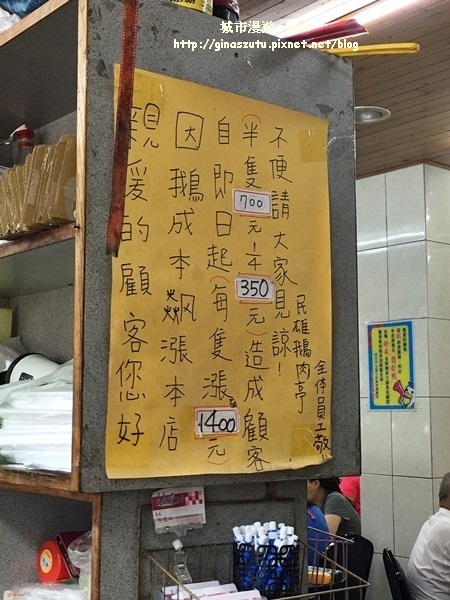 城市漫遊
http://ginaszutu.pixnet.net/blog
親愛的顧客您好
因鵝成本飆漲本店
自即日起(每隻漲至1400元)
(半隻700元1/4350元)造成顧客
不便請大家見諒!
民雄鵝肉亭
全体員工敬